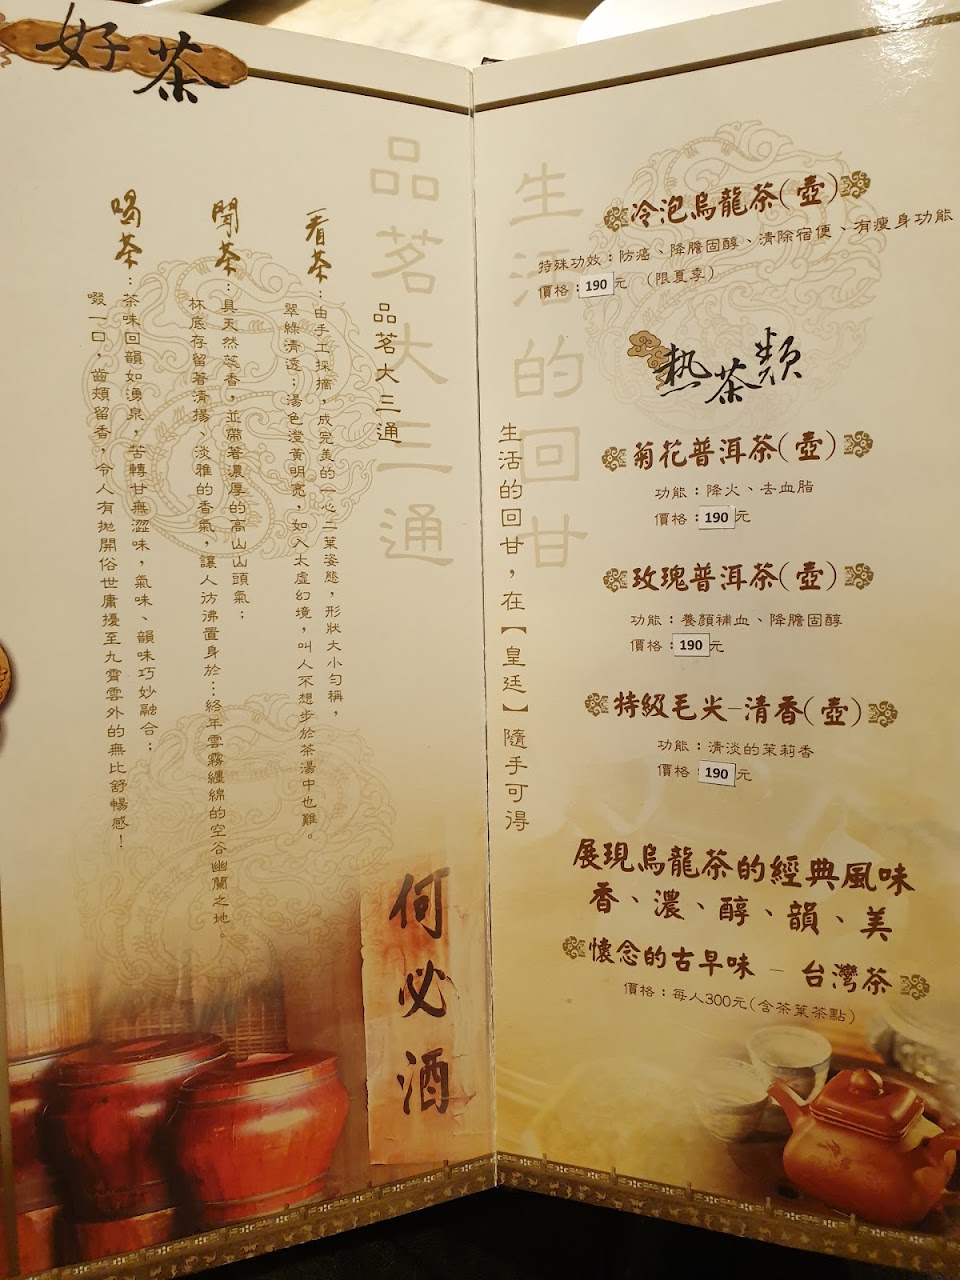 好茶
品茗大三通
品茗大三通
看茶：由手工採摘，成完美的一心二葉姿態，形狀大小勻稱，
翠綠清透；湯色澄黃明亮，如入太虛幻境，叫人不想步於茶湯中也難。
聞茶：具天然蕊香，並帶著濃厚的高山山頭氣；
杯底存留著清揚、淡雅的香氣，讓人彷彿置身於…終年雲霧纏綿的空谷幽蘭之地。
喝茶：茶味回韻如湧泉，苦轉甘無澀味，氣味、韻味巧妙融合；
啜一口，齒頰留香，令人有拋開俗世庸擾至九霄雲外的無比舒暢感！
何必酒
生活的回甘
生活的回甘，在【皇廷】隨手可得
冷泡烏龍茶(壺)
特殊功效：防癌、降膽固醇、清除宿便、有瘦身功能
價格：190元 (限夏季)
熱茶類
菊花普洱茶(壺)
功能：降火、去血脂
價格：190元
玫瑰普洱茶(壺)
功能：養顏補血、降膽固醇
價格：190元
特級毛尖–清香(壺)
功能：清淡的茉莉香
價格：190元
展現烏龍茶的經典風味
香、濃、醇、韻、美
懷念的古早味 – 台灣茶
價格：每人300元(含茶葉茶點)